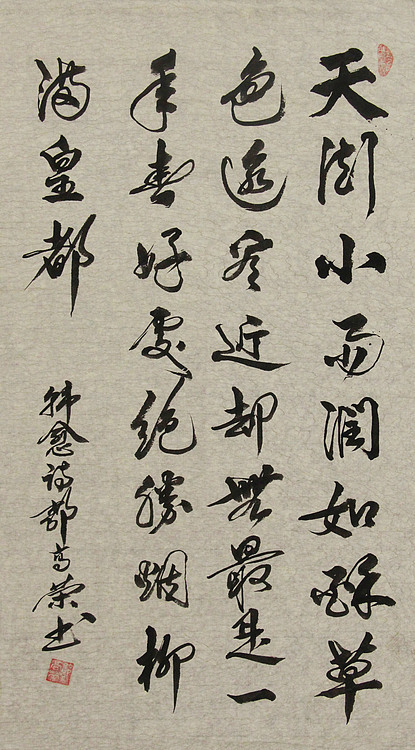 天街小雨潤如酥草
色遥看近却無最是一
年春好處絕勝烟柳
滿皇都
韩愈诗高荣书